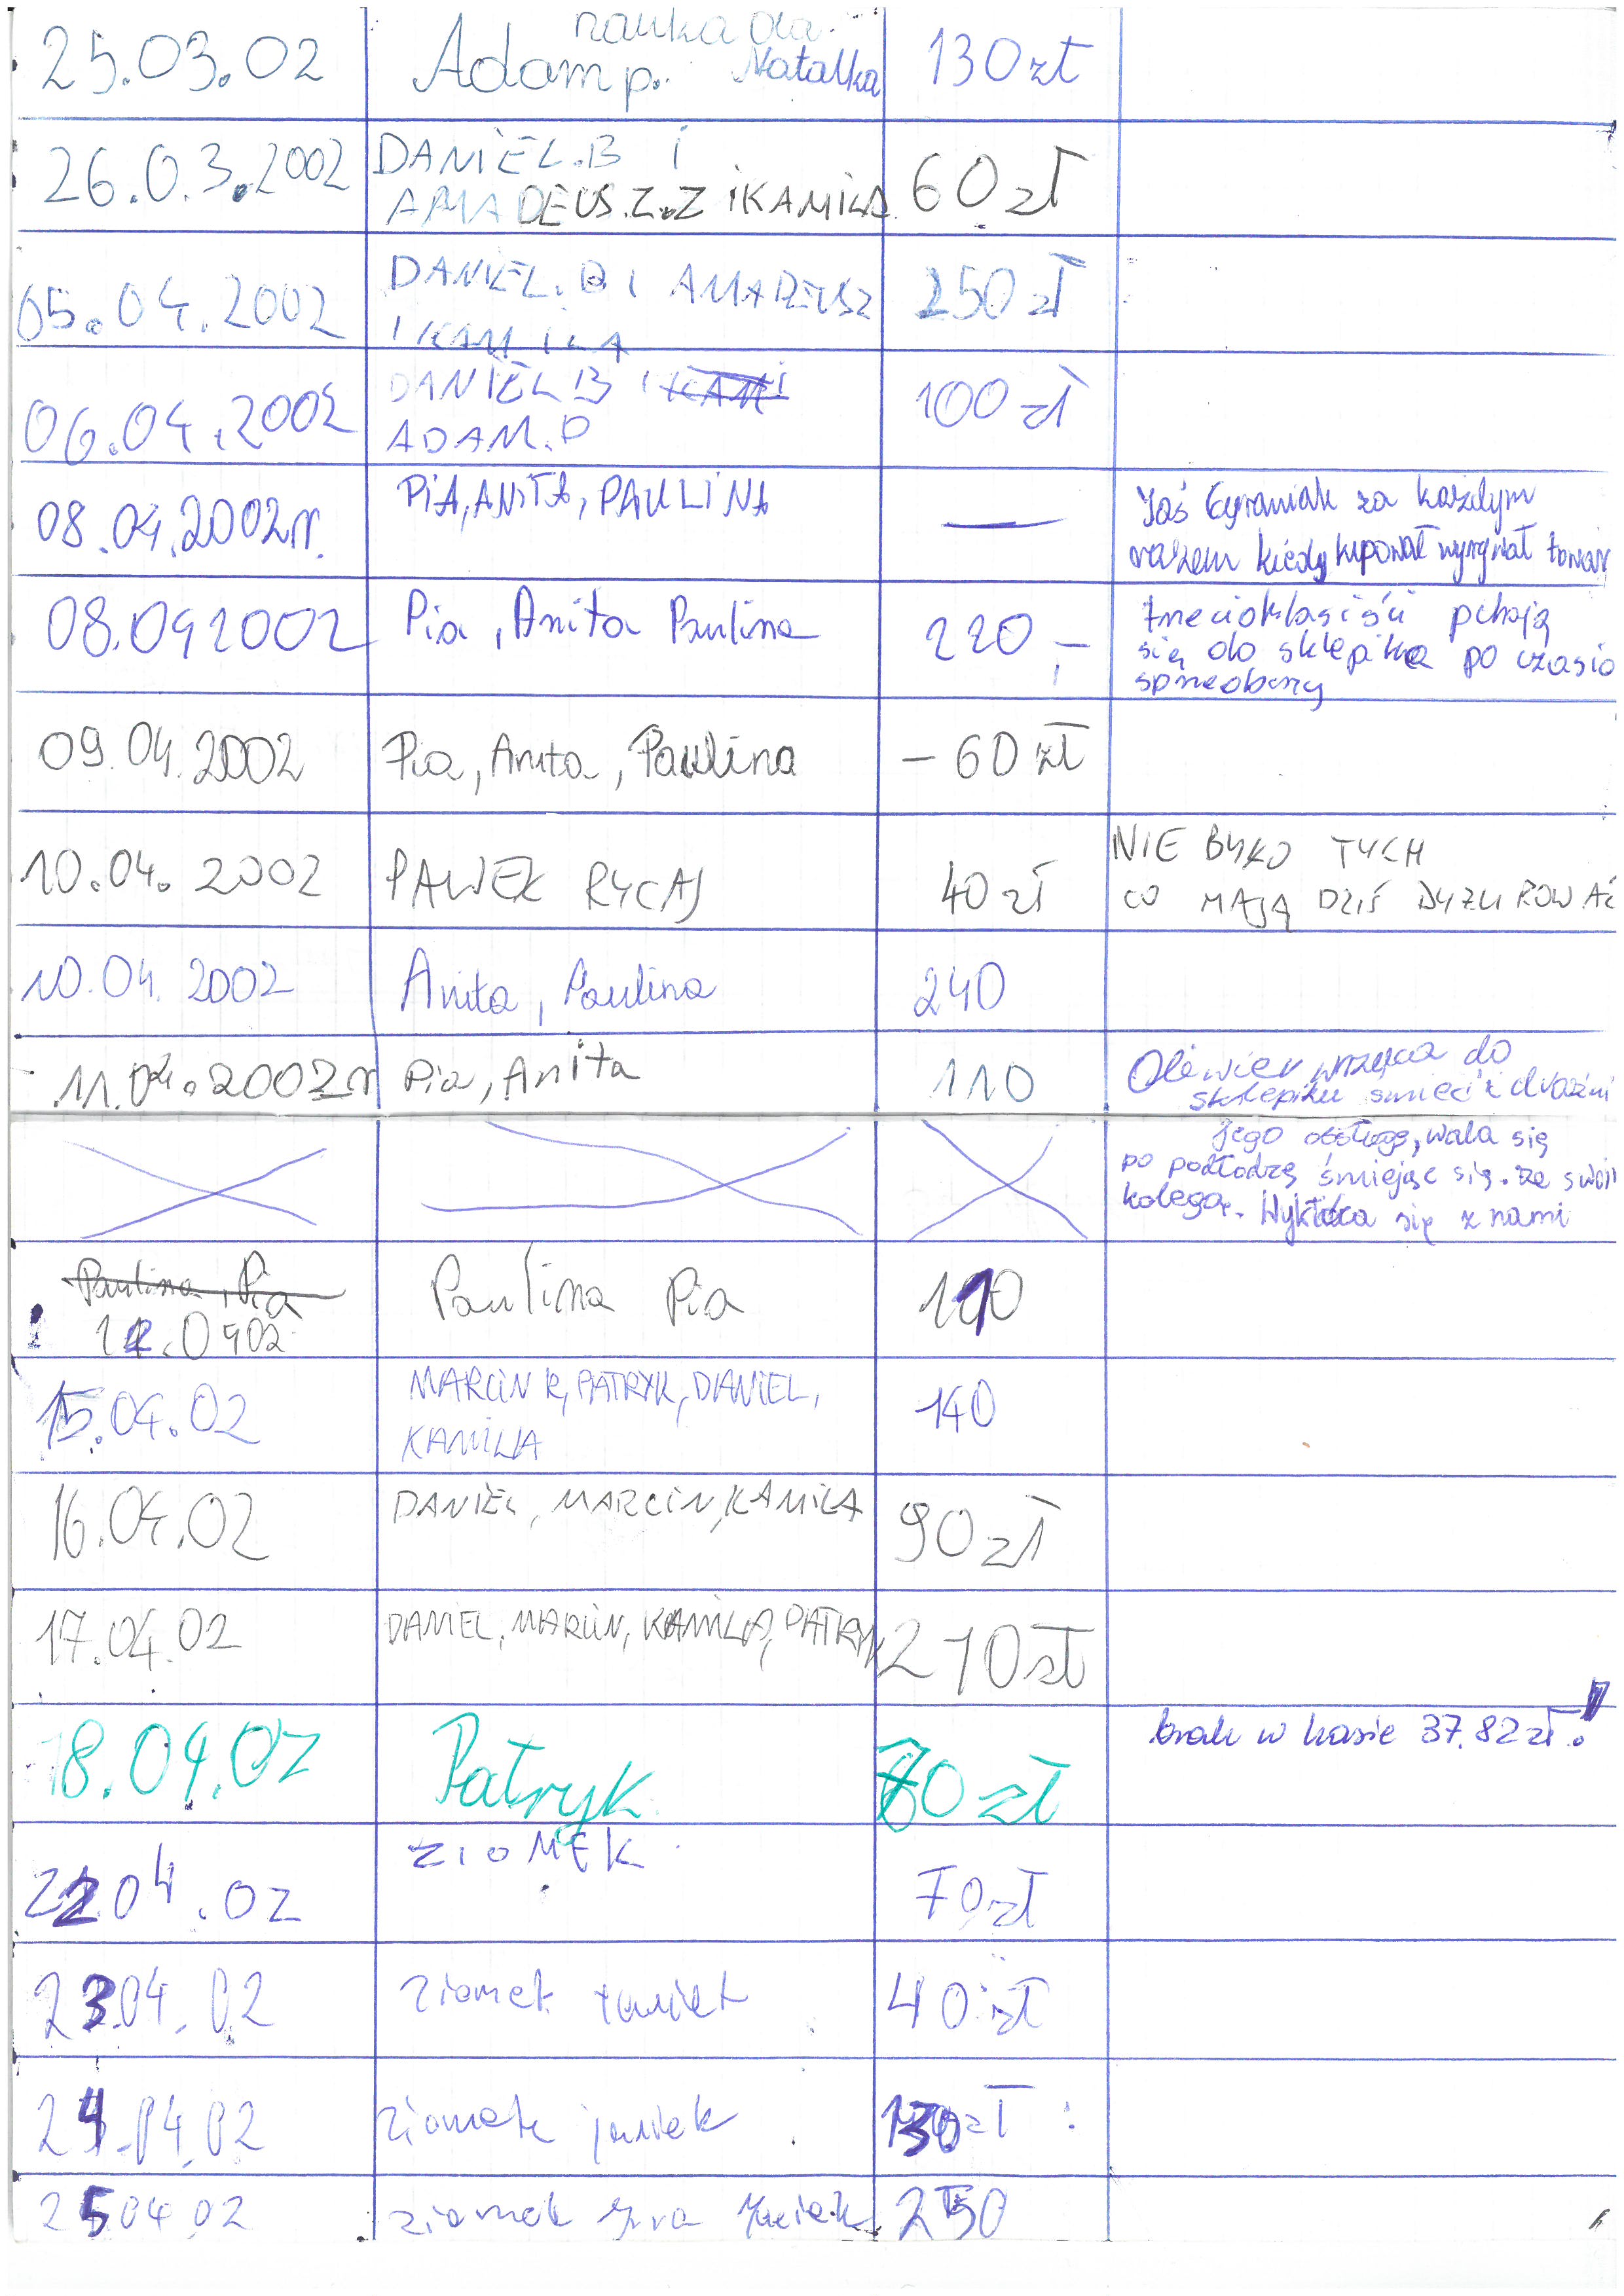 25.03.02 Adam p. nauka dla Natalka 130 zł
26.0.3.2002 DANIEL.B i
AMADEUS.Z.Z IKAMILA 60 zł
05.04.2002 DANIEL.B I AMADEUSZ
I KAMILA 250 zł
06.04.2002 DANIEL B I
ADAM.P 100 zł
08.04.2002r. PIA, ANITA, PAULINA —
Jaś za każdym
razem kiedy kupował wyrywał towar
08.042002 Pia, Anita Paulina 220,-
trzecioklasiści pchają
się do sklepika po czasie
sprzedarzy
09.04.2002 Pia, Anita, Paulina – 60 zł
10.04.2002 PAWEŁ RYCAJ 40 zł
NIE BYŁO TYCH
CO MAJĄ DZIŚ DYZUROWAĆ
10.04.2002 Anita, Paulina 240
11.04.2002r Pia, Anita 110
Oliwier wrzuca do
sklepiku śmieci i drażni
jego obsługę, wala się
po podłodzę śmiejąc się. ze swoim
kolegą. Wykłóca się z nami
Paulina, Pia
12.0402 Paulina Pia 110
15.04.02 MARCIN R, PATRYK, DANIEL,
KAMILA 140
16.04.02 DANIEL, MARCIN, KAMILA 90 zł
17.04.02 DANIEL, MARCIN, KAMILA, PATRYK 210 zł
18.04.02 Patryk 70 zł
brak w kasie 37.82 zł. !
2204.02 ZIOMEK 70 zł
2304.02 ziomek 40 zł
24.04.02 ziomek janiek 130 zł
2504.02 ziomek 250